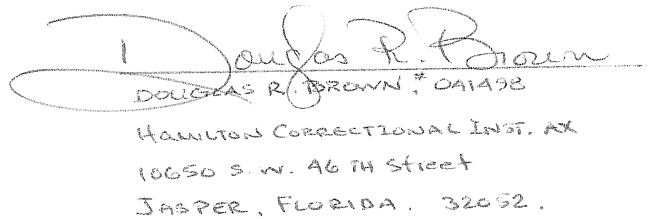 Douglas R. Brown
DOUGLAS R. BROWN, # OA1498
HAMILTON CORRECTIONAL INST. AX
10650 S.W. 46 TH Street
JASPER, FLORIDA. 32052.